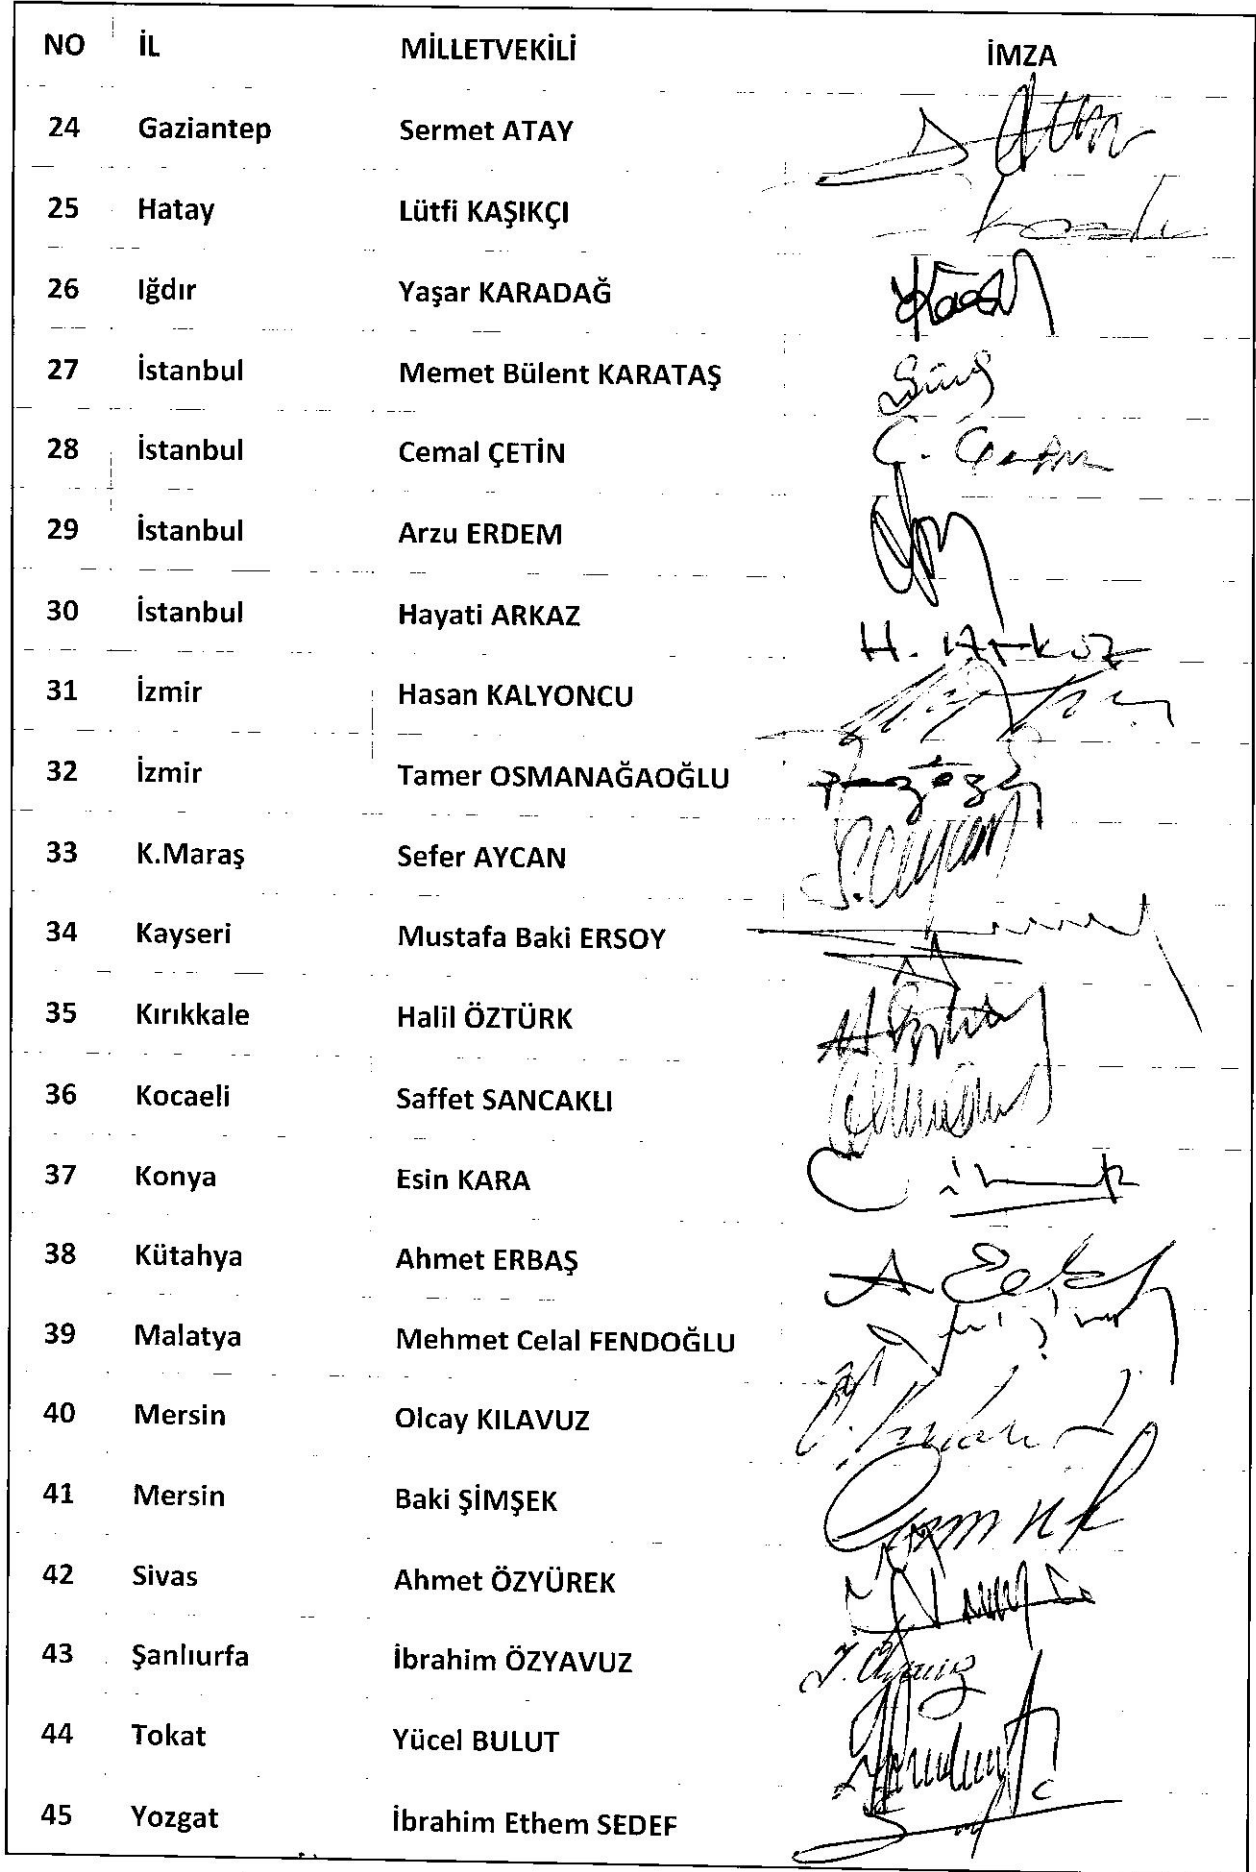 NO İL MİLLETVEKİLİ İMZA
24 Gaziantep Sermet ATAY
25 Hatay Lütfi KAŞIKÇI
26 Iğdır Yaşar KARADAĞ
27 İstanbul Memet Bülent KARATAŞ
28 İstanbul Cemal ÇETİN
29 İstanbul Arzu ERDEM
30 İstanbul Hayati ARKAZ H. Arkaz
31 İzmir Hasan KALYONCU
32 İzmir Tamer OSMANAĞAOĞLU
33 K.Maraş Sefer AYCAN S. Aycan
34 Kayseri Mustafa Baki ERSOY
35 Kırıkkale Halil ÖZTÜRK
36 Kocaeli Saffet SANCAKLI
37 Konya Esin KARA
38 Kütahya Ahmet ERBAŞ
39 Malatya Mehmet Celal FENDOĞLU
40 Mersin Olcay KILAVUZ
41 Mersin Baki ŞİMŞEK
42 Sivas Ahmet ÖZYÜREK
43 Şanlıurfa İbrahim ÖZYAVUZ
44 Tokat Yücel BULUT
45 Yozgat İbrahim Ethem SEDEF